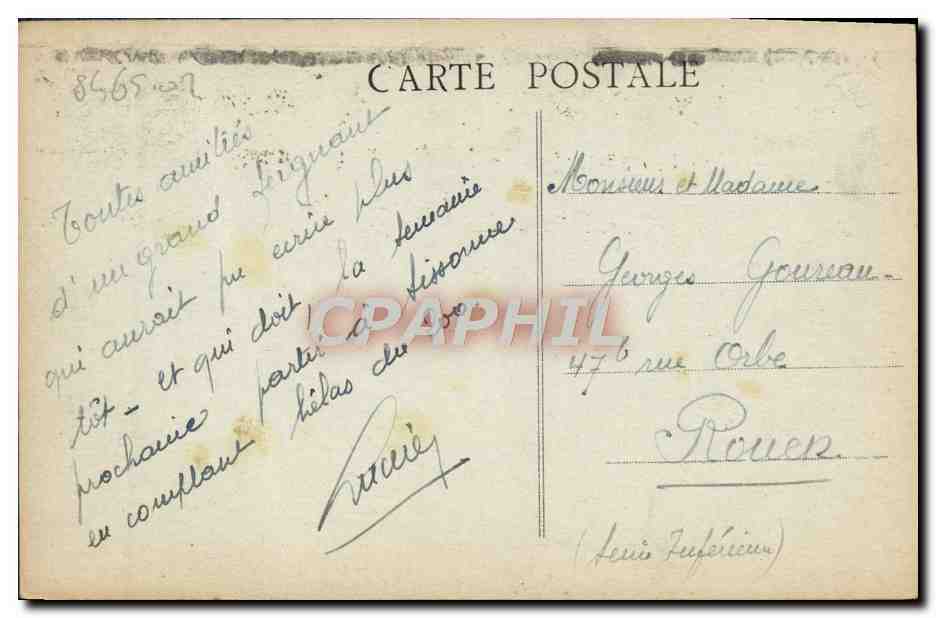 8465.02
CARTE POSTALE
Toutes amitiés
d'un grand feignant
qui aurait pu écrire plus
tôt - et qui doit la semaine
prochaine partir à Sissonne
en comptant hélas du 200
Monsieur et Madame
Georges Goureau
47b rue Orbe
Rouen
(Seine Inférieure)
CPAPHIL